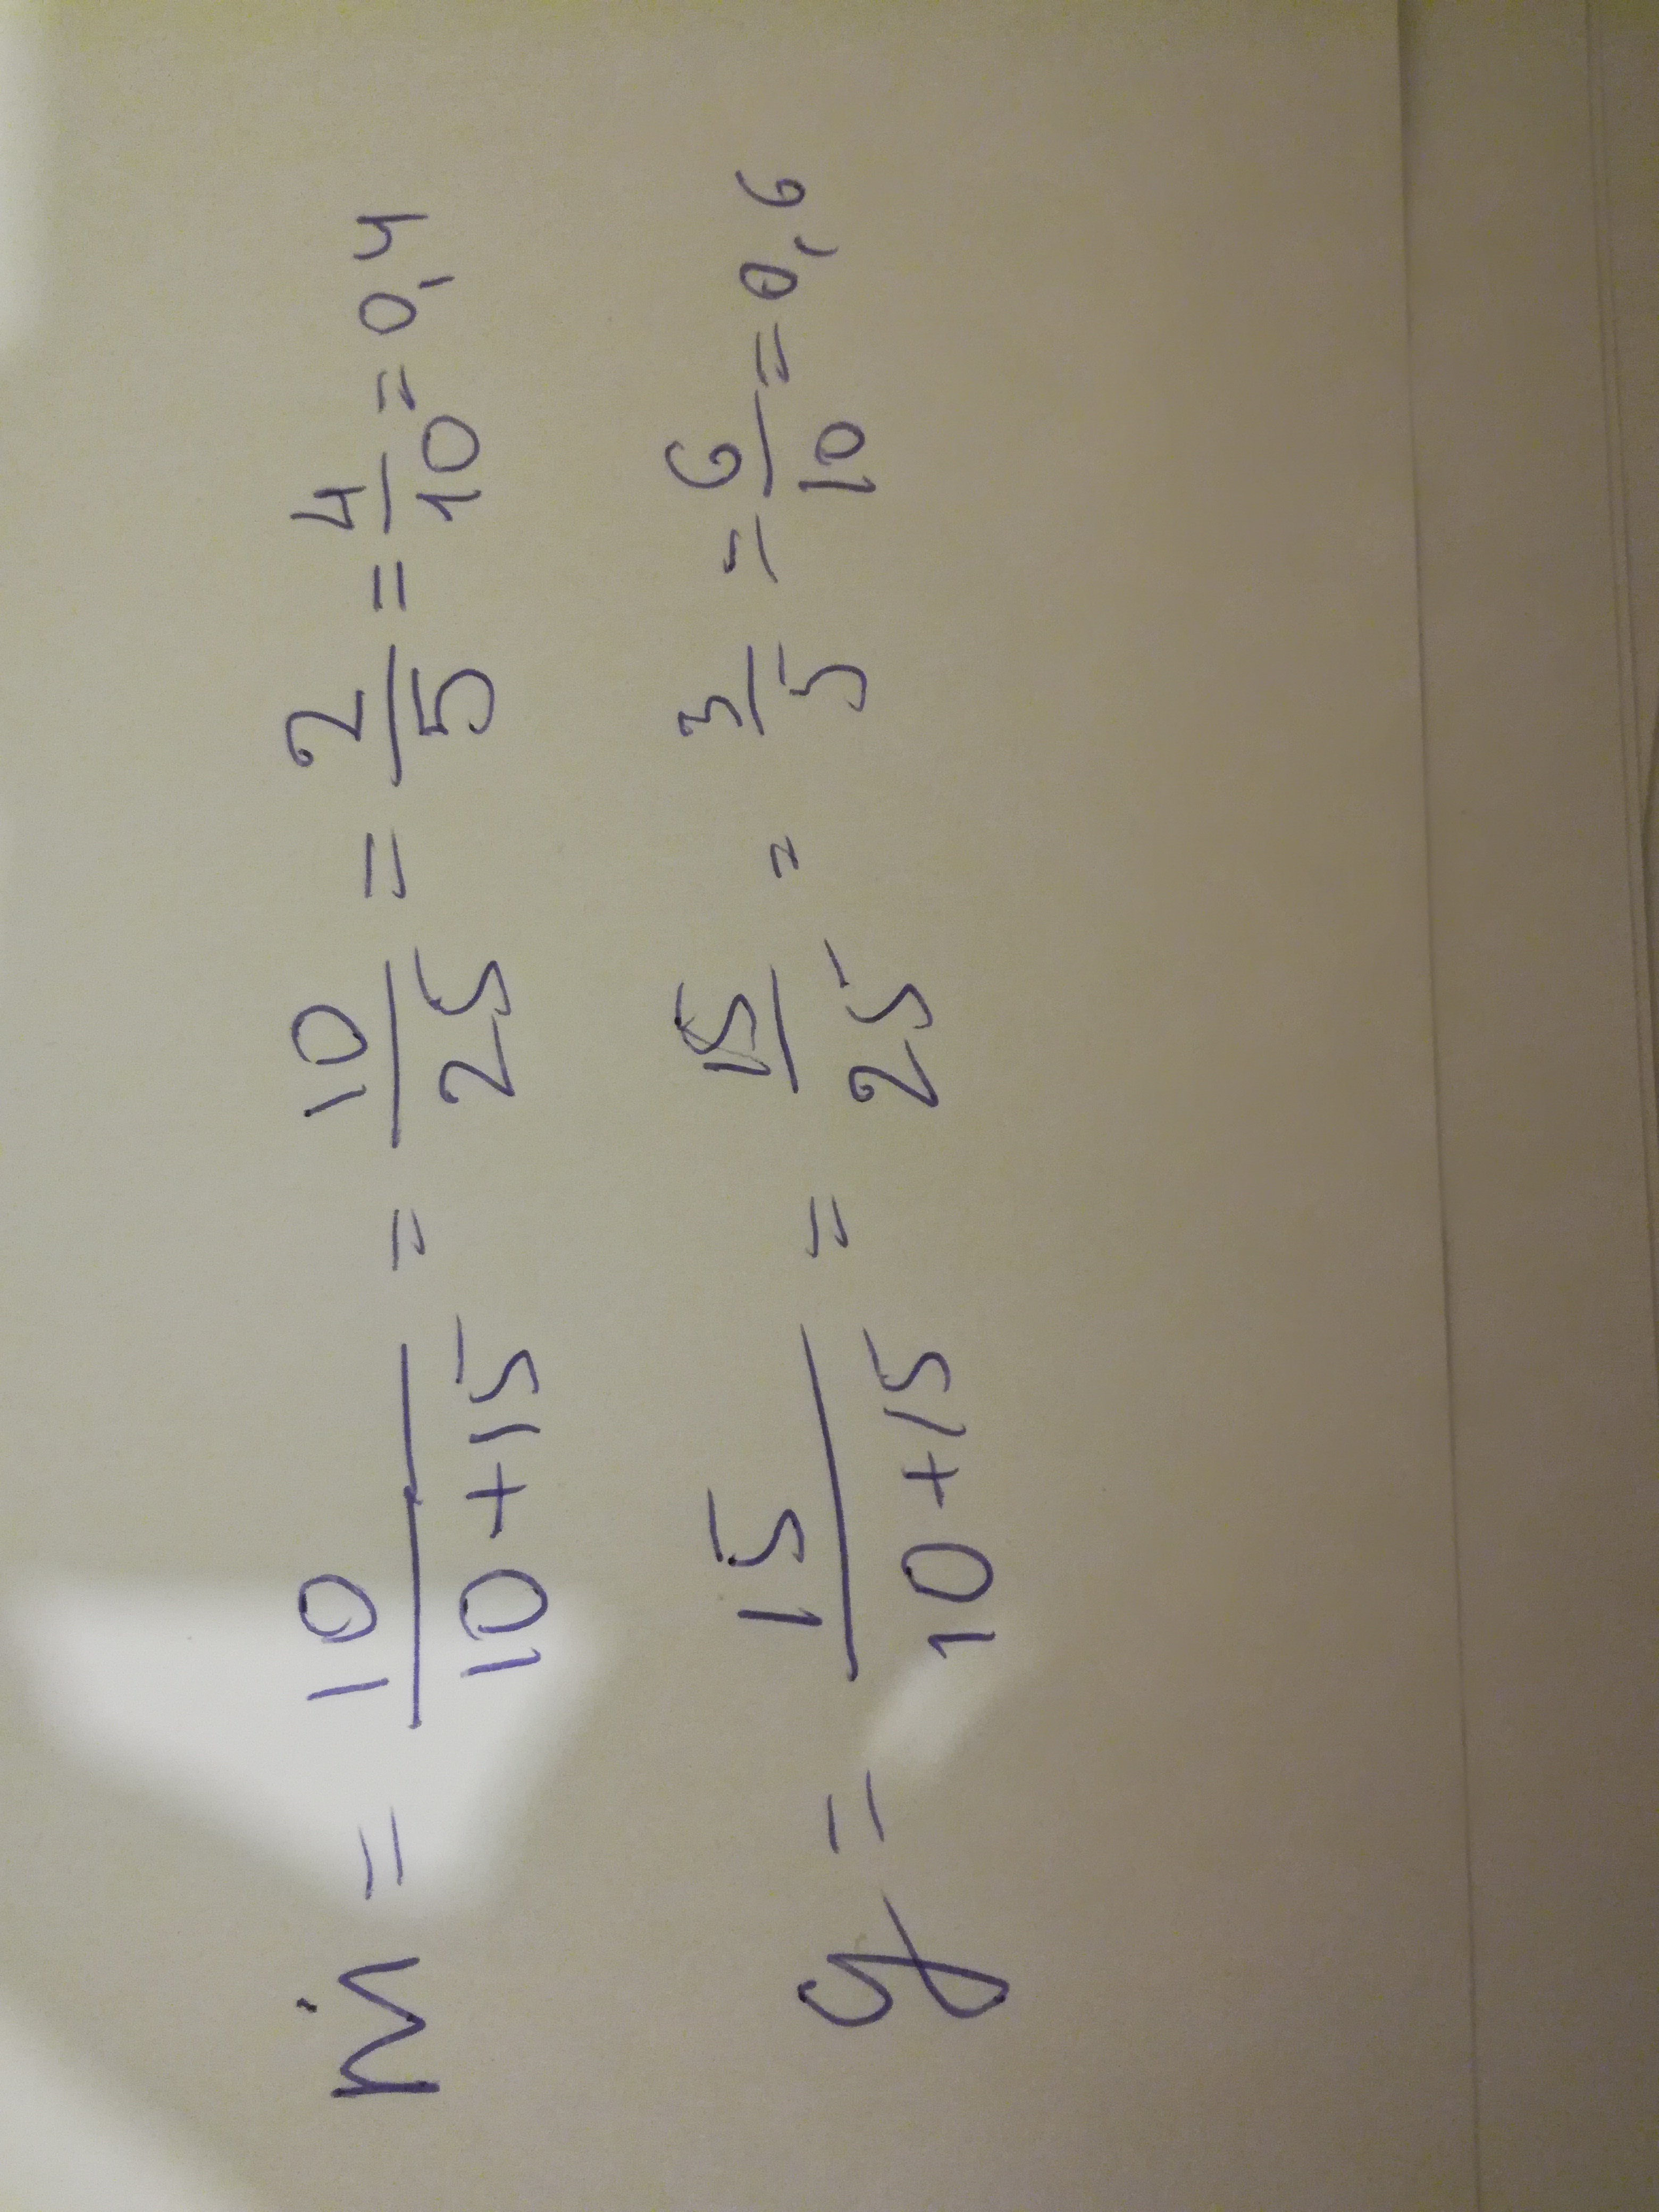 M = 10/(10+15) = 10/25 = 2/5 = 4/10 = 0,4
g = 15/(10+15) = 15/25 = 3/5 = 6/10 = 0,6